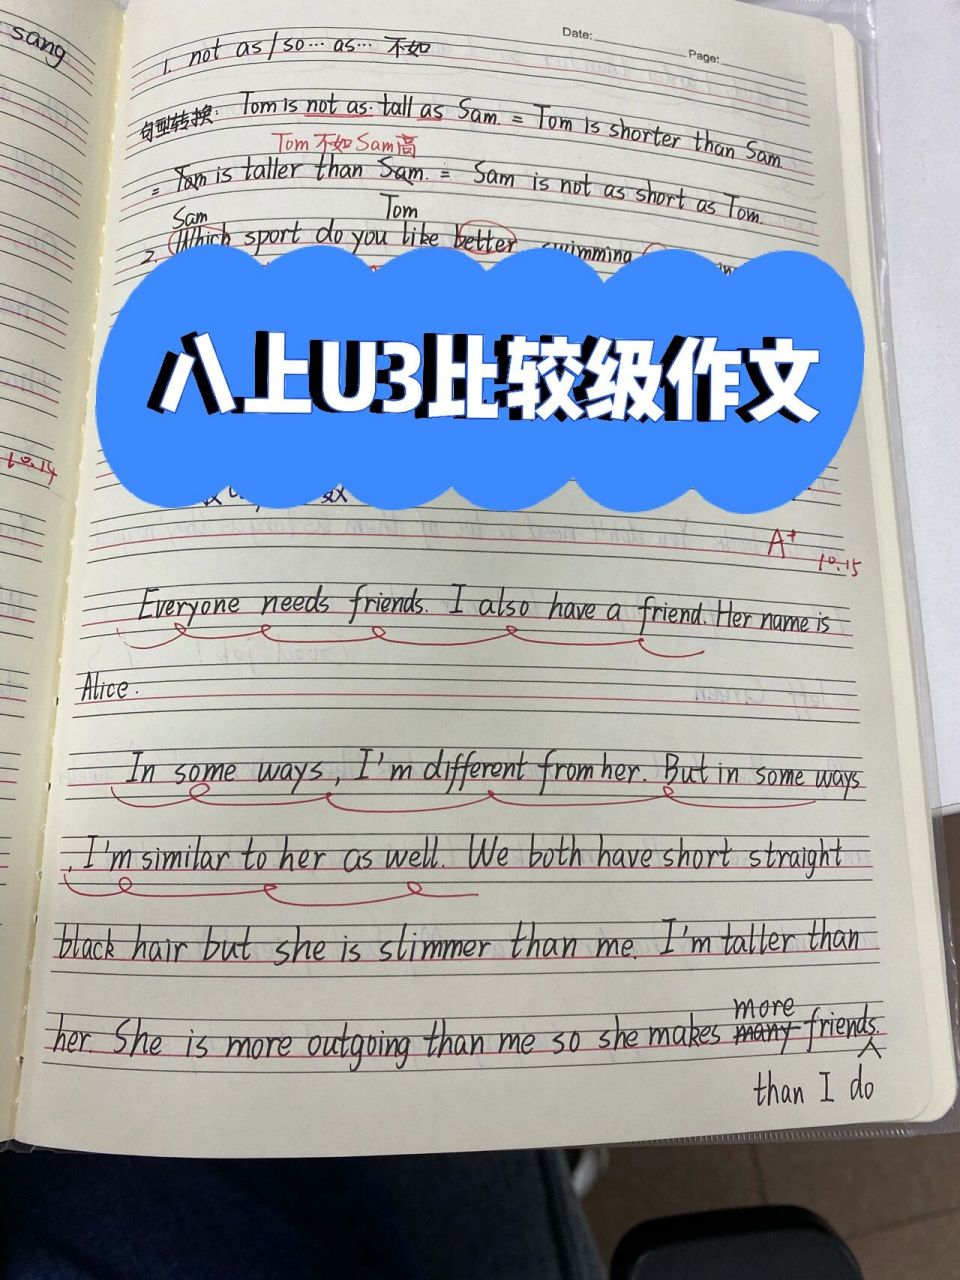 sang
Date: Page:
1. not as/so… as… 不如
句型转换: Tom is not as tall as Sam. = Tom is shorter than Sam
Tom不如Sam高
= Tom is taller than Sam. = Sam is not as short as Tom.
Sam Tom
2. Which sport do you like better, swimming
八上U3比较级作文
10.14
A+
10.15
Everyone needs friends. I also have a friend. Her name is
Alice.
In some ways, I'm different from her. But in some ways
, I'm similar to her as well. We both have short straight
black hair but she is slimmer than me. I'm taller than
her. She is more outgoing than me so she makes many friends.
more
than I do